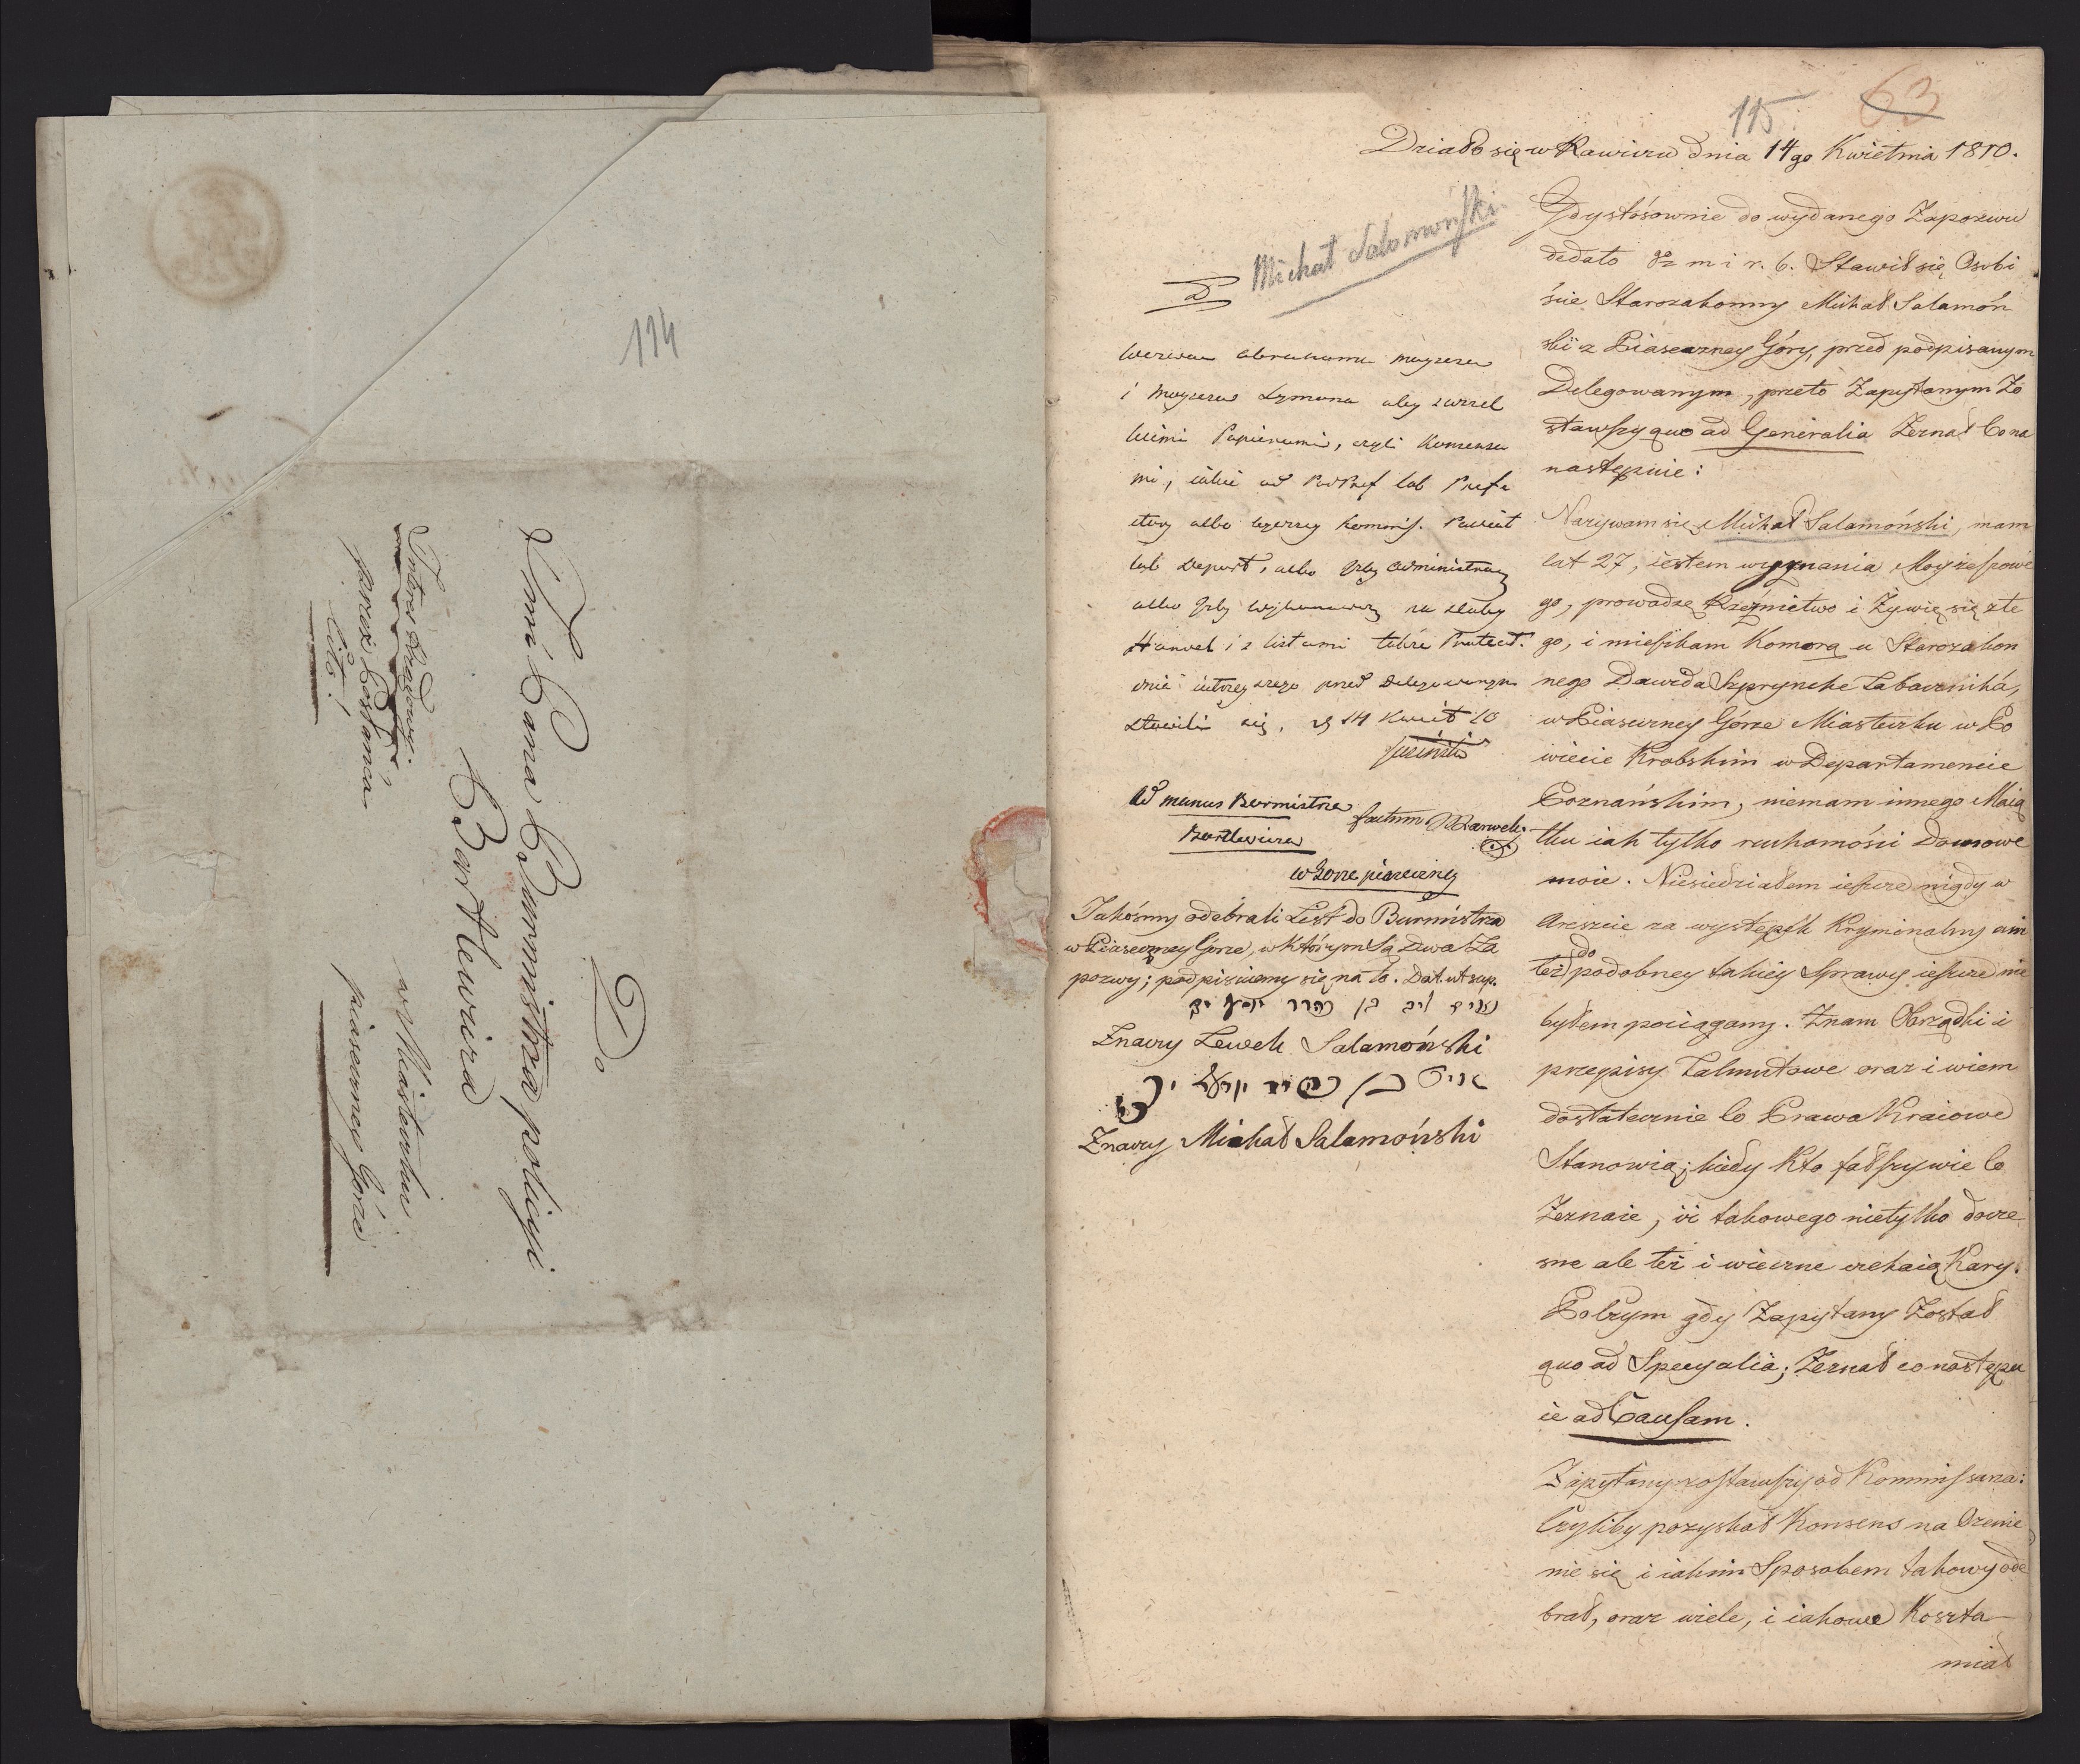 114
Do
Jmci Pana Burmistrza policyi
Bartlewicza
w Miasteczku
piaseczney Górze
Intres Rządowy
przez Posłańca
Cito!
115
63
Działo się w Rawiczu dnia 14go Kwietnia 1810.
Michał Salomoński
D
Abrahama Moyzesza
i Moyzesza Szymona aby z wszel
kiemi Papierami, czyli Konsensa
mi, iakie od PodPref lub Prefe
ktury albo Kommis. Powiat
lub Depart, albo Izby Administracy
albo Izby na śluby
Handel i z listami także Protect.
dnia iutrzeyszego przed Delegowanym
stawili się, d 14 Kwiet 10
Ad manus Burmistrza
Bartlewicza
factum
w Górze piaseczney
Jakośmy odebrali List do Burmistrza
w Piaseczney Górze, w którym są dwa Za
pozwy; podpisuiemy się na to. Dat. ut sup.
Znaczy Lewek Salamoński
Znaczy Michał Salamoński
Gdy stósownie do wydanego Zapozwu
dedato m i r. b. Stawił się Osobi
ście Starozakonny Michał Salamoń
ski z Piaseczney Góry, przed podpisanym
Delegowanym, przeto Zapytanym Zo
stawszy quo ad Generalia Zeznał Co na
następuie:
Nazywam się Michał Salamoński, mam
lat 27, iestem wyznania Moyżeszowe
go, prowadzę Rzeźnictwo i Żywię się z te
go, i mieszkam Komorą u Starozakon
nego Dawida Szpryncke Tabacznika,
w Piaseczney Górze Miasteczku w Po
wiecie Krobskim w Departamencie
Poznańskim, niemam innego Maią
tku iak tylko ruchomości Domowe
moie. Niesiedziałem ieszcze nigdy w
Areszcie za występek Kryminalny ani
też do podobney takiéy Sprawy ieszcze nie
byłem pociągany. Znam Obrządki i
przepisy Talmutowe oraz i wiem
dostatecznie Co Prawa Kraiowe
Stanowią; kiedy Kto fałszywie Co
Zeznaie, iż takowego nietylko docze
sne ale też i wieczne czekaią Kary.
Poczym gdy Zapytany Został
quo ad Specyalia; Zeznał co następu
ie ad Causam.
Zapytany zostawszy od Kommissarza:
Czyliby pozyskał Konsens na Ożenie
nie się i iakim Sposobem takowy ode
brał, oraz wiele, i iakowe Koszta
miał